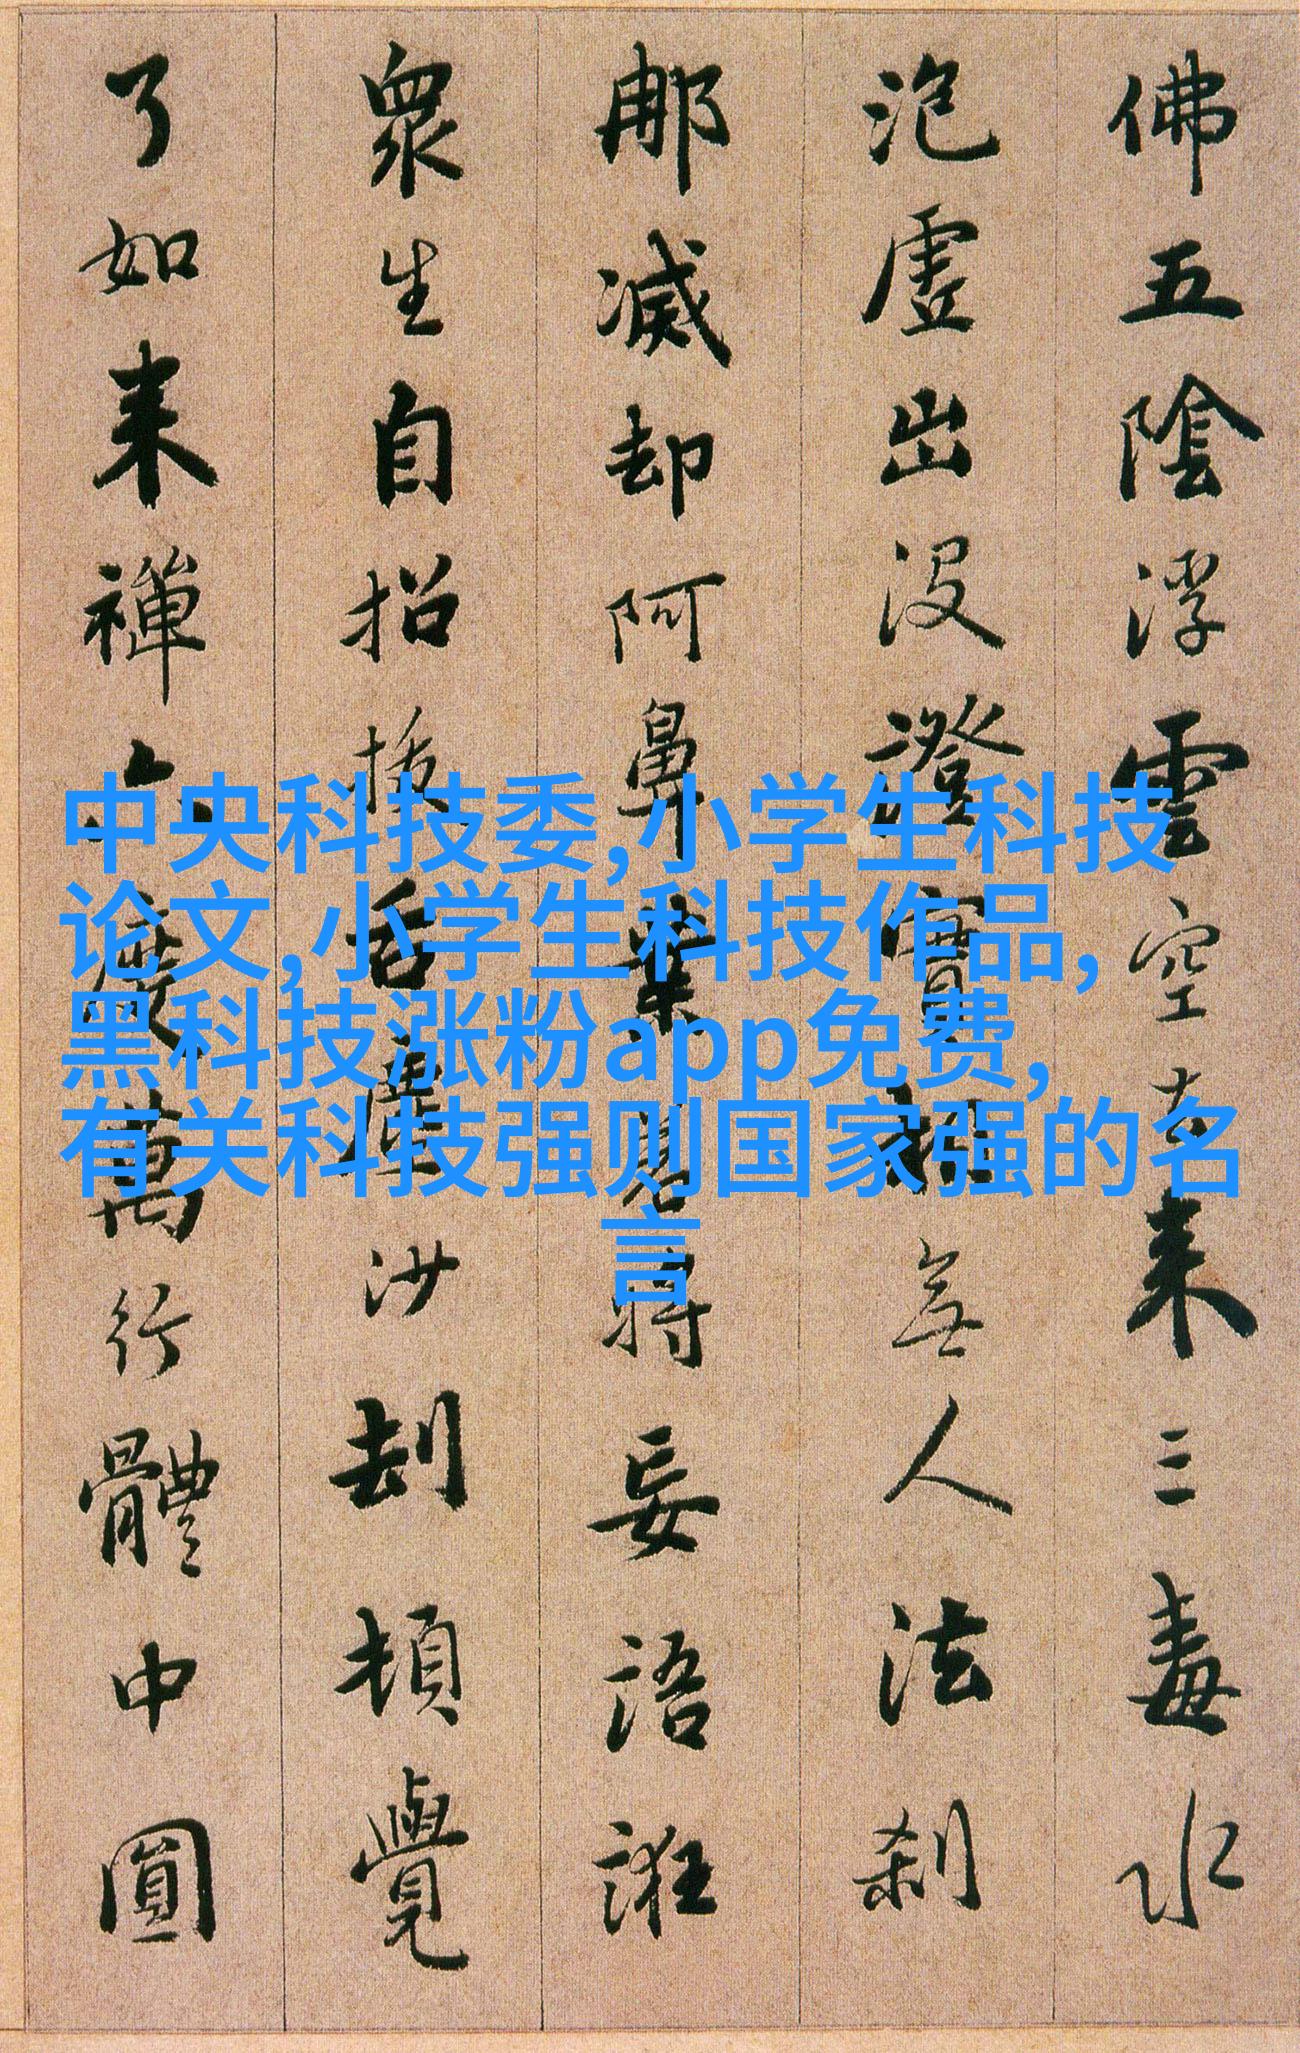 佛五陰浮雲空去来三毒水
泡虚出没證實相無人法刹
那滅却阿鼻業若將妄語誑
衆生自招拔舌塵沙劫頓覺
了如来禪六度萬行體中圓
中央科技委,小学生科技
论文,小学生科技作品,
黑科技涨粉app免费,
有关科技强则国家强的名
言